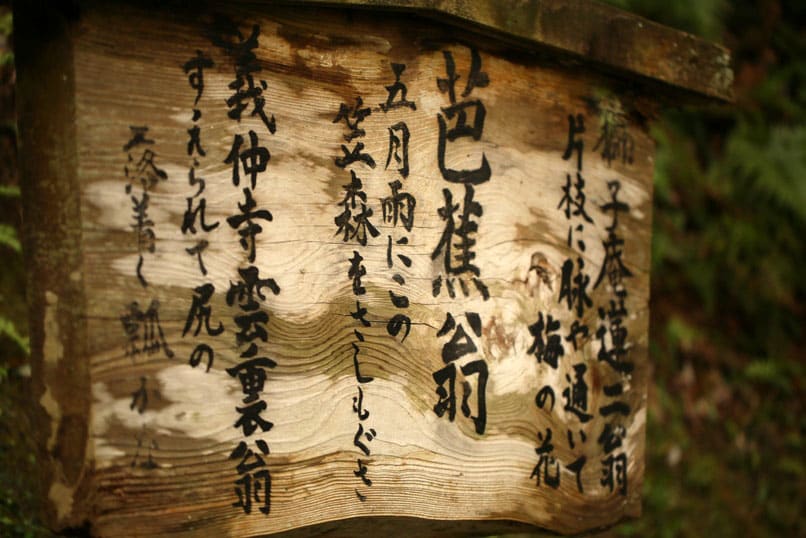 獅子庵蓮二翁
片枝に脉や通いて
梅の花
芭蕉翁
五月雨にこの
笠森をさしもぐさ
義仲寺雲裏翁
すえられて尻の
落着く瓢かな